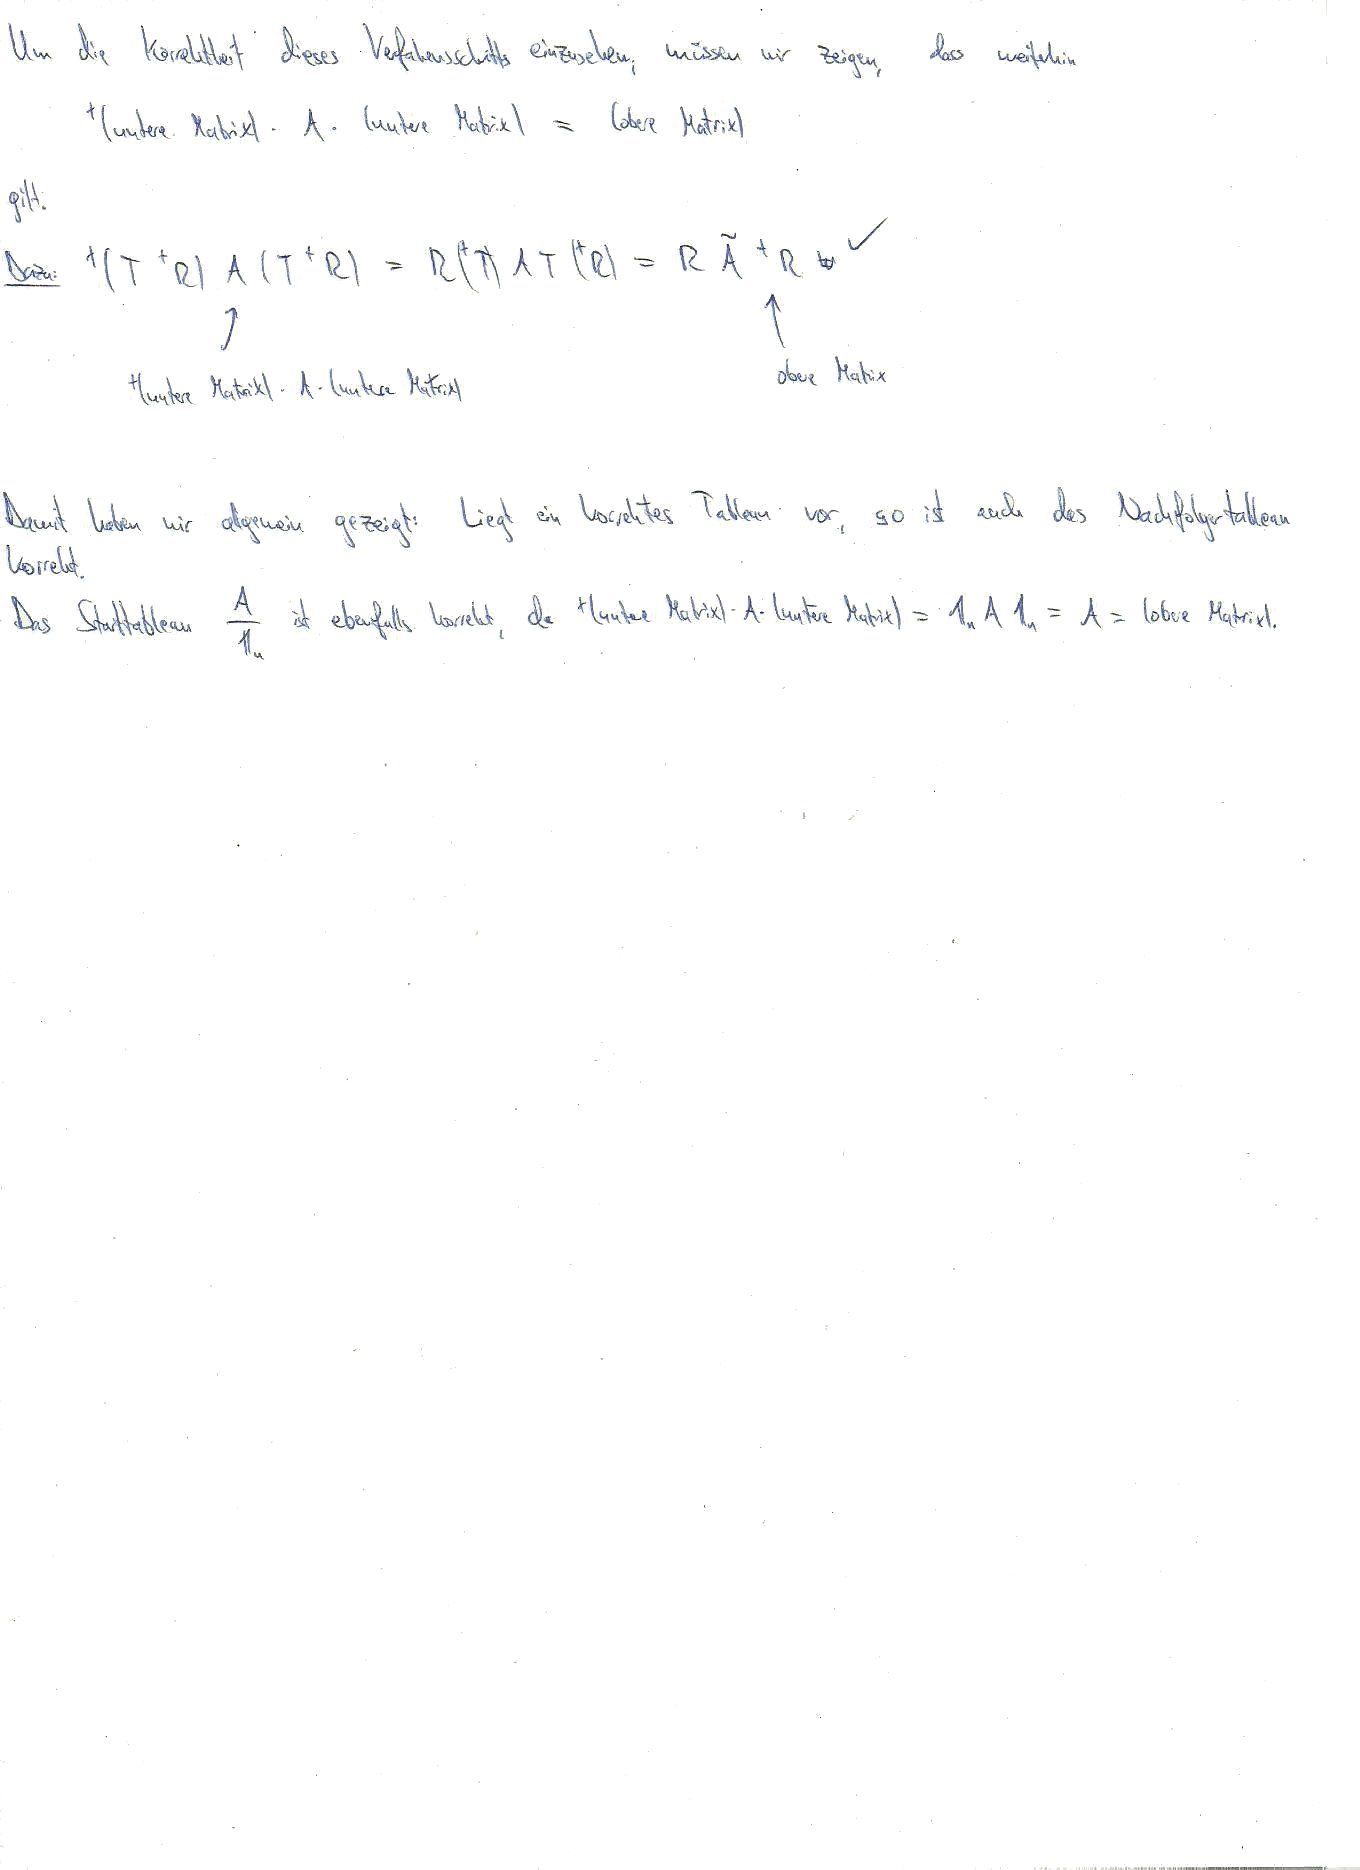 Um die Korrektheit dieses Verfahrensschritts einzusehen, müssen wir zeigen, dass weiterhin
ᵗ(untere Matrix) · A · (untere Matrix) = (obere Matrix)
gilt.
Dazu: ᵗ(T ᵗR) A (T ᵗR) = R(ᵗT) A T (ᵗR) = R Ã ᵗR ✓
ᵗ(untere Matrix) · A · (untere Matrix)
obere Matrix
Damit haben wir allgemein gezeigt: Liegt ein korrektes Tableau vor, so ist auch das Nachfolgertableau
korrekt.
Das Starttableau A/𝟙ₙ ist ebenfalls korrekt, da ᵗ(untere Matrix) · A · (untere Matrix) = 𝟙ₙ A 𝟙ₙ = A = (obere Matrix).